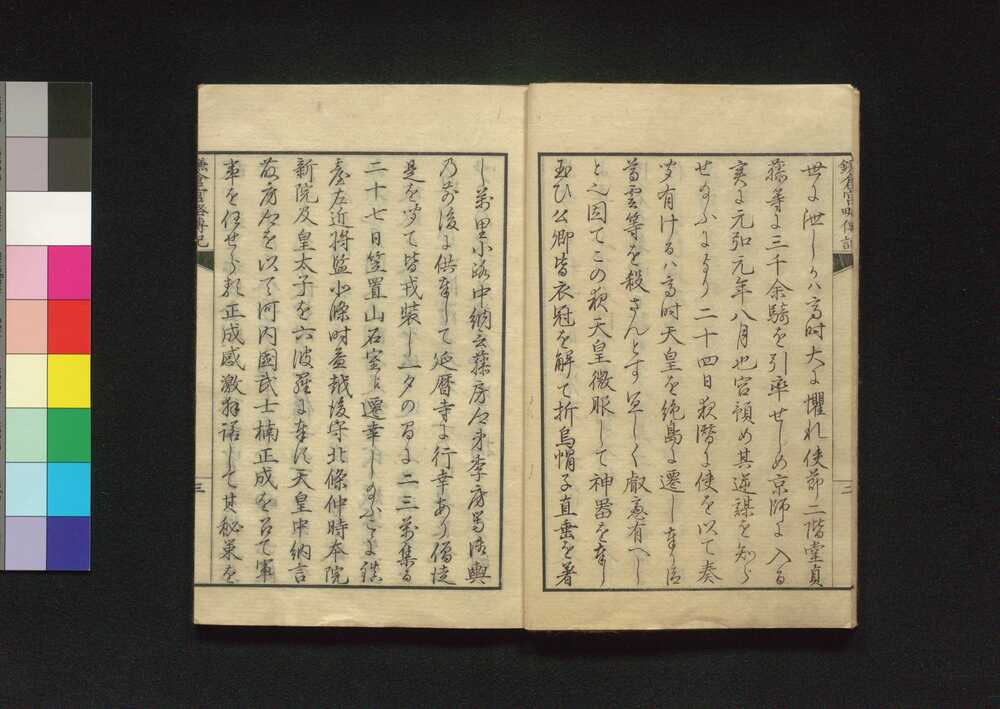 世に泄しかハ高時大に懼れ使節二階堂貞
藤等に三千余騎を引率せしめ京師に入る
実に元弘元年八月也宮預め其逆謀を知ら
せ二十四日夜潜に使を以て奏
有けるハ高時天皇を絶島に遷し
尊雲等を殺さんとす宜しく叡慮有へし
と之因てこの夜天皇微服して神器を奉し
玉ひ公卿皆衣冠を解て折烏帽子直垂を着
し万里小路中納言藤房々弟季房等鳳輿
乃前後に供奉して延暦寺に行幸あり僧徒
是を皆戎装し一夕の間に二三万集る
二十七日笠置山石室に遷幸し
左近将監北條時益越後守北條仲時本院
新院及皇太子を六波羅に天皇中納言
藤房々を以て河内國武士楠正成を召て軍
事を任せらる正成感激拜諾して其秘策を
鎌倉宮略傳記
三